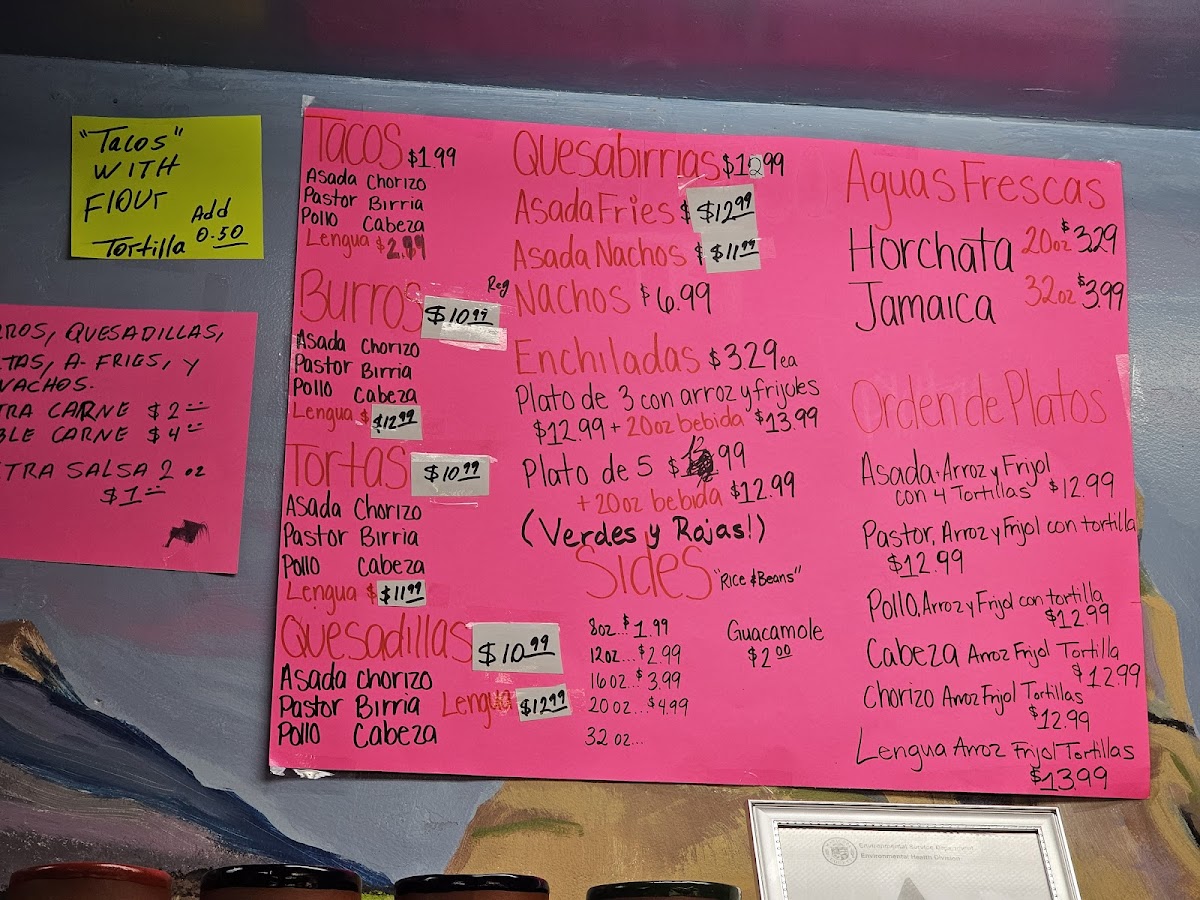 "Tacos"
WITH
FLOUR
Tortilla
Add
0.50
ROS, QUESADILLAS,
TAS, A-FRIES, Y
NACHOS.
TRA CARNE $2
BLE CARNE $4
XTRA SALSA 2 oz
$1
Tacos $1.99
Asada Chorizo
Pastor Birria
Pollo Cabeza
Lengua
Burros Reg $10.99
Asada Chorizo
Pastor Birria
Pollo Cabeza
Lengua $ $12.99
Tortas $10.99
Asada Chorizo
Pastor Birria
Pollo Cabeza
Lengua $ $11.99
Quesadillas $10.99
Asada Chorizo
Pastor Birria Lengua $12.99
Pollo Cabeza
Quesabirrias
Asada Fries $ $12.99
Asada Nachos $ $11.99
Nachos $6.99
Enchiladas $3.29 ea
Plato de 3 con arroz y frijoles
$12.99 + 20oz bebida $13.99
Plato de 5
+ 20oz bebida $12.99
(Verdes y Rajas!)
Sides "Rice & Beans"
8oz...$1.99
12oz...$2.99
16oz...$3.99
20oz...$4.99
32oz...
Guacamole
$2.00
Aguas Frescas
Horchata 20oz $3.29
Jamaica 32oz $3.99
Orden de Platos
Asada, Arroz y Frijol
con 4 Tortillas $12.99
Pastor, Arroz y Frijol con tortilla
$12.99
Pollo, Arroz y Frijol con tortilla
$12.99
Cabeza Arroz Frijol Tortilla
$12.99
Chorizo Arroz Frijol Tortillas
$12.99
Lengua Arroz Frijol Tortillas
$13.99
Environmental Services Department
Environmental Health Division